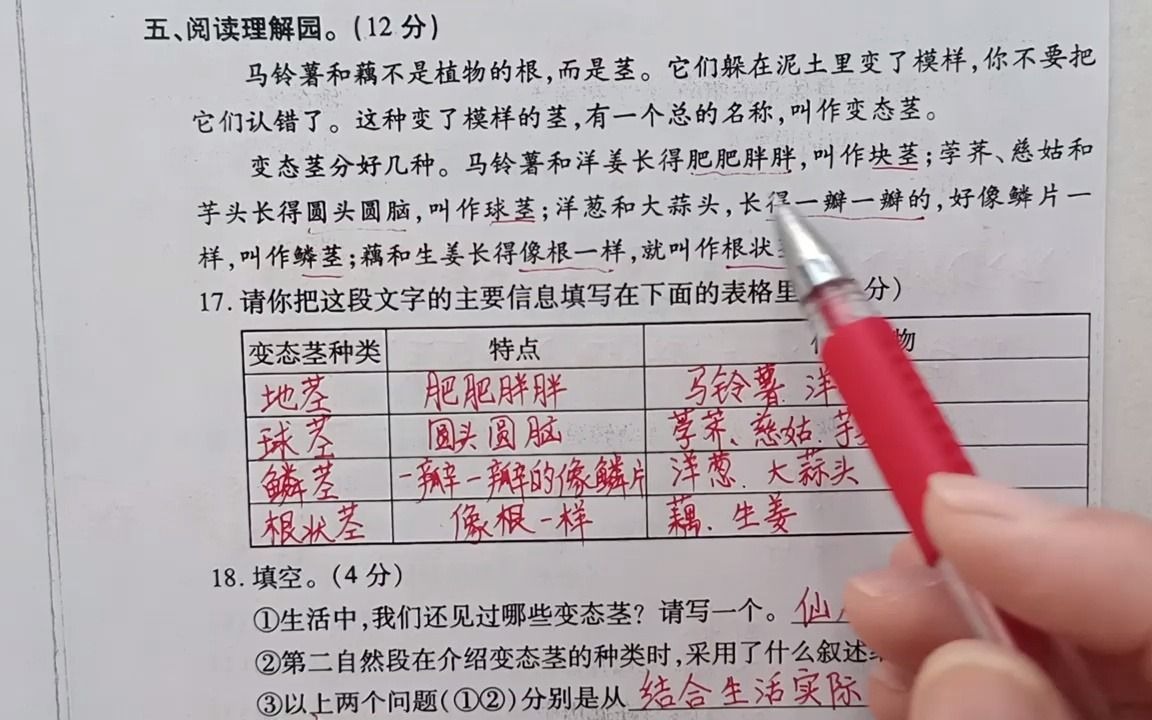 五、阅读理解园。(12 分)
马铃薯和藕不是植物的根,而是茎。它们躲在泥土里变了模样,你不要把
它们认错了。这种变了模样的茎,有一个总的名称,叫作变态茎。
变态茎分好几种。马铃薯和洋姜长得肥肥胖胖,叫作块茎;荸荠、慈姑和
芋头长得圆头圆脑,叫作球茎;洋葱和大蒜头,长得一瓣一瓣的,好像鳞片一
样,叫作鳞茎;藕和生姜长得像根一样,就叫作根状
17. 请你把这段文字的主要信息填写在下面的表格里 分)
变态茎种类 特点 物
地茎 肥肥胖胖 马铃薯、洋
球茎 圆头圆脑 荸荠、慈姑、芋
鳞茎 一瓣一瓣的像鳞片 洋葱、大蒜头
根状茎 像根一样 藕、生姜
18. 填空。(4 分)
①生活中,我们还见过哪些变态茎? 请写一个。仙
②第二自然段在介绍变态茎的种类时,采用了什么叙述
③以上两个问题(①②)分别是从 结合生活实际